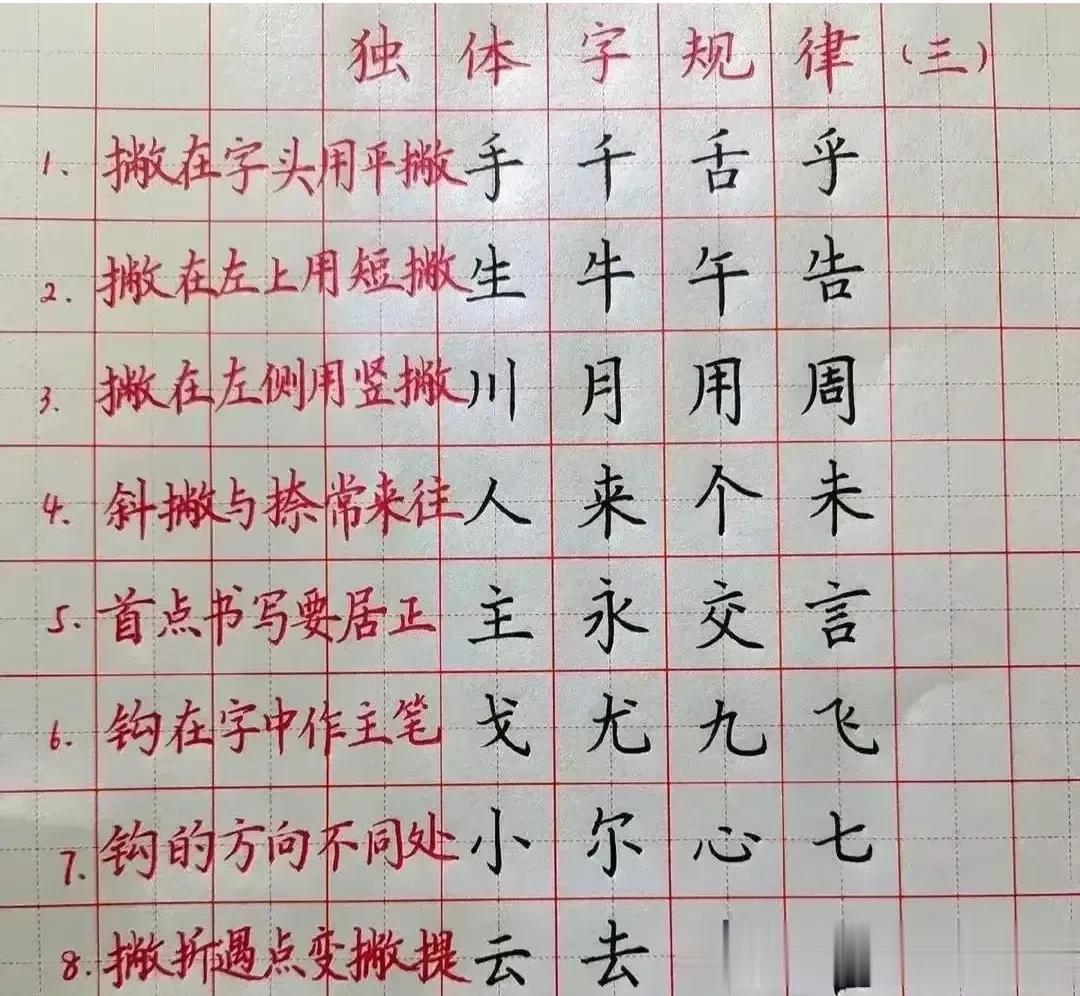 独体字规律(三)
1. 撇在字头用平撇 手 千 舌 乎
2. 撇在左上用短撇 生 牛 午 告
3. 撇在左侧用竖撇 川 月 用 周
4. 斜撇与捺常来往 人 来 个 未
5. 首点书写要居正 主 永 交 言
6. 钩在字中作主笔 戈 尤 九 飞
7. 钩的方向不同处 小 尔 心 七
8. 撇折遇点变撇提 云 去